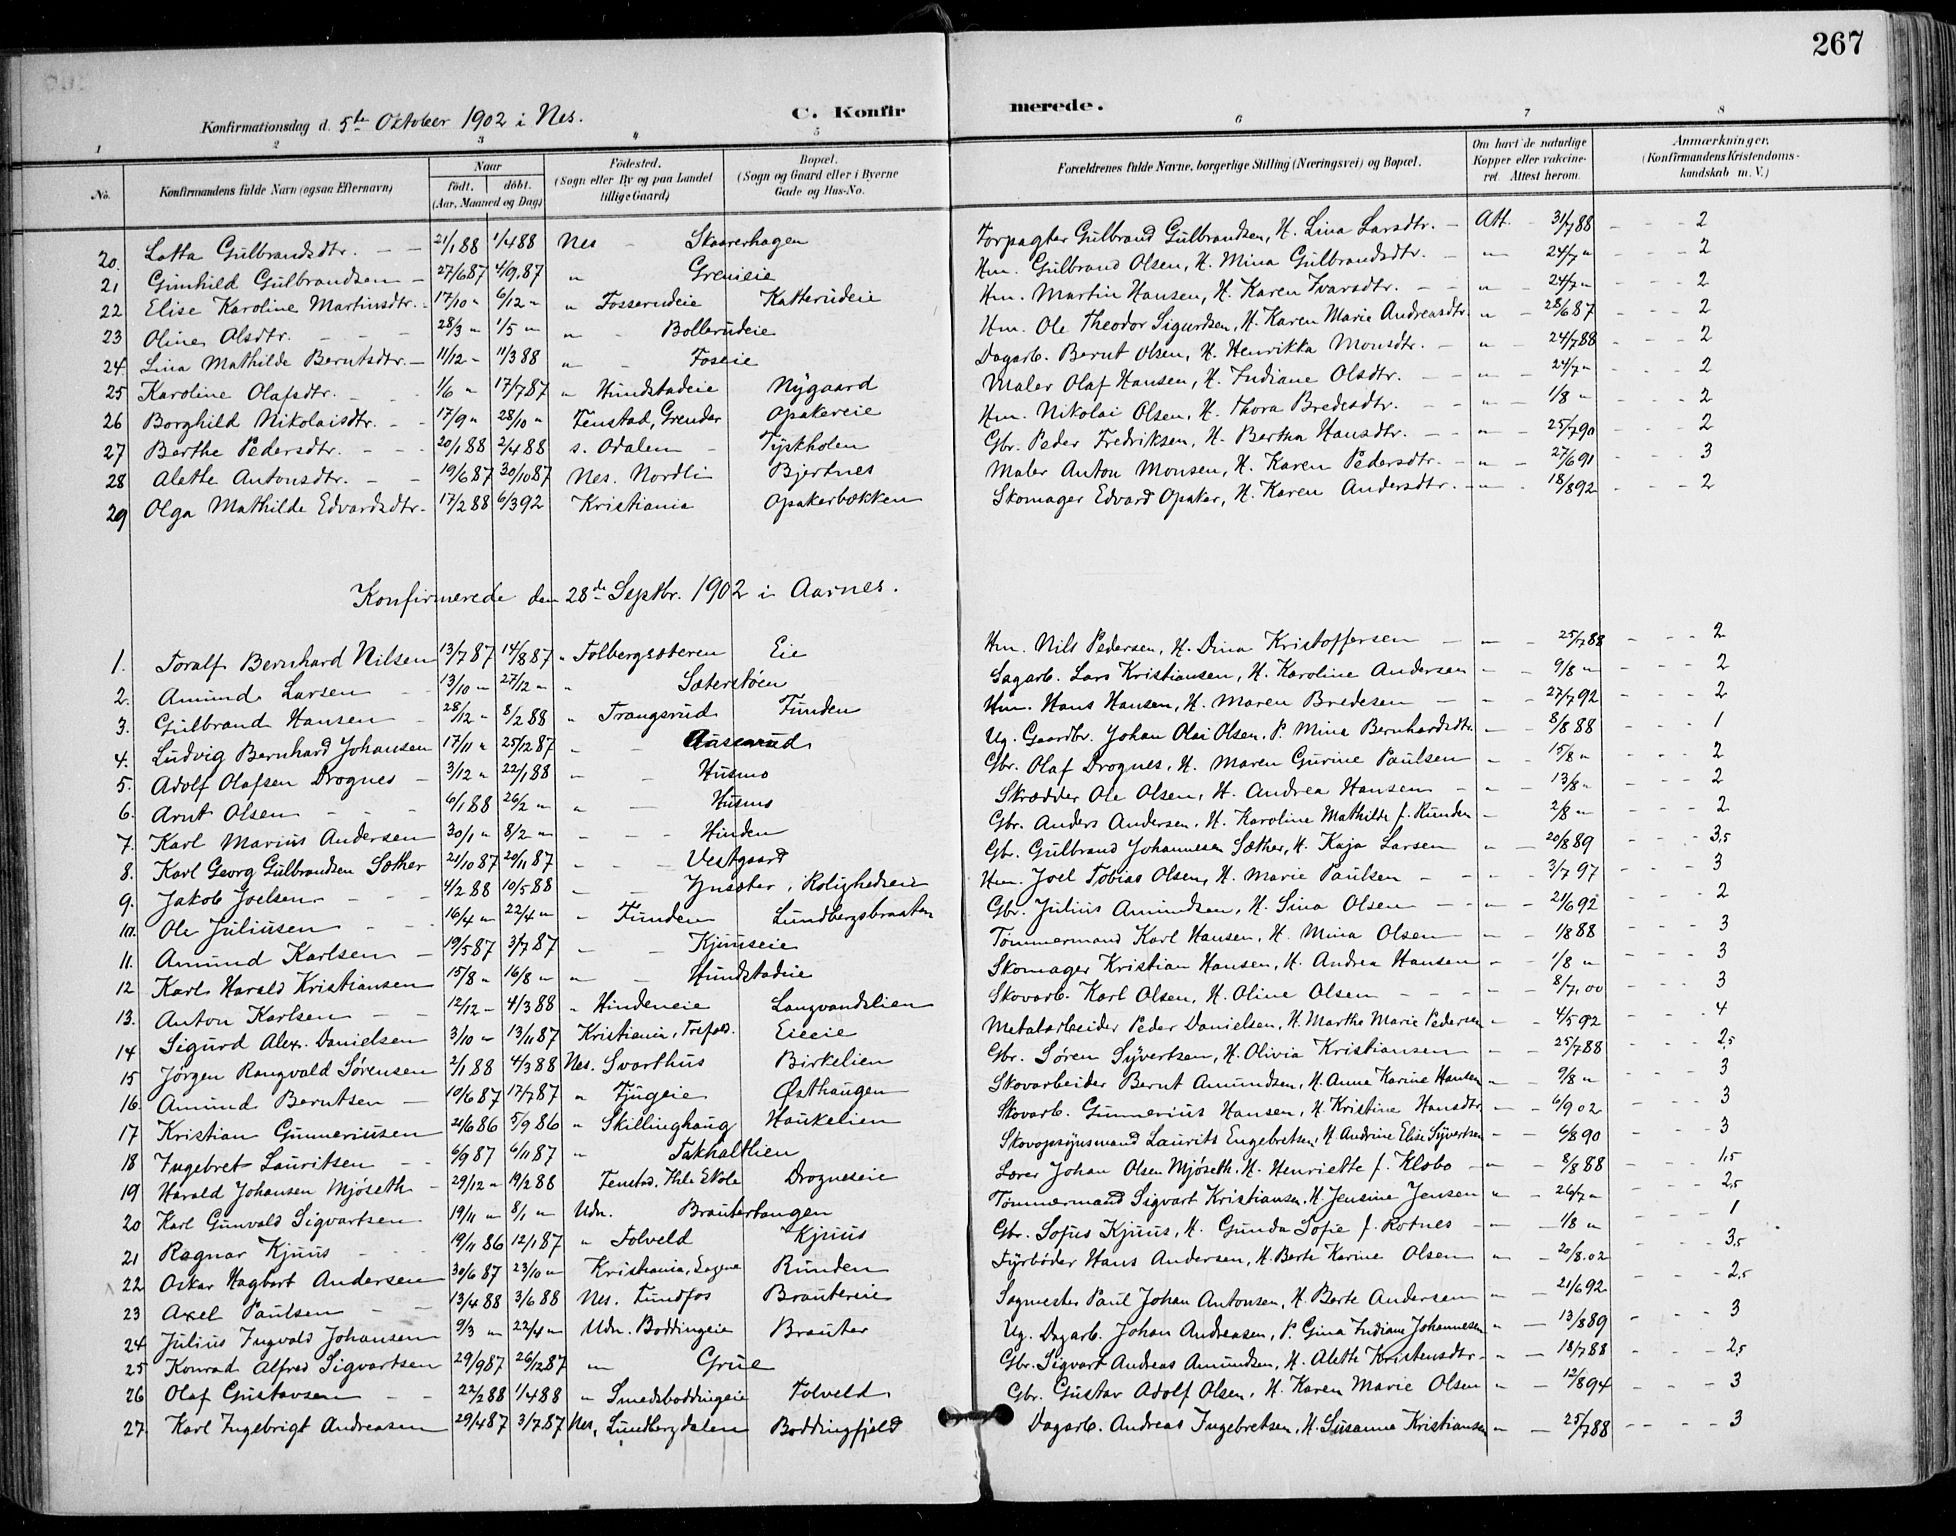 267
Konfirmationsdag d. 5te Oktober 1902 i Nes. C. Konfirmerede.
1 2 3 4 5 6 7 8
No. Konfirmandens fulde Navn (ogsaa Efternavn) Naar født. døbt. (Aar, Maaned og Dag) Fødested. (Sogn eller By og paa Landet tillige Gaard) Bopæl. (Sogn og Gaard eller i Byerne Gade og Hus-No. Forældrenes fulde Navne, borgerlige Stilling (Næringsvei) og Bopæl. Om havt de naturlige Kopper eller vakcineret. Attest herom. Anmærkninger. (Konfirmandens Kristendomskundskab m. V.)
20. Lotta Gulbrandsdtr. 21/1 88 1/4 88 Nes Skaarerhagen Forpagter Gulbrand Gulbrandsen, H. Lina Larsdtr. Att. 31/7 88 2
21 Gunhild Gulbrandsen 27/6 87 4/9 87 " Grenieie Hm. Gulbrand Olsen, H. Mina Gulbrandsdtr. " 24/7 " 2
22 Elise Karoline Martinsdtr. 17/10 " 6/12 " " Fosserudeie Katterudeie Hm. Martin Hansen, H. Karen Ivarsdtr. " 24/7 " 2
23 Oline Olsdtr. 28/3 " 1/5 " " Bollerudeie Hm. Ole Theodor Sigurdsen, H. Karen Marie Andreasdtr. " 28/6 87 2
24. Lina Mathilde Berntsdtr. 11/12 " 11/3 88 " Foseie Dagarb. Bernt Olsen, H. Henrikka Monsdtr. " 24/7 88 2
25 Karoline Olafsdtr. 1/6 " 17/7 87 " Hundstadeie Nygaard Maler Olaf Hansen, H. Indiane Olsdtr. " 24/7 " 2
26 Borghild Nikolaisdtr. 17/9 " 28/10 " Fenstad, Grender Opakereie Hm. Nikolai Olsen, H. Thora Bredesdtr. " 1/8 " 2
27 Berthe Pedersdtr. 20/1 88 2/4 88 s. Odalen Tyskholen Gbr. Peder Fredriksen, H. Bertha Hansdtr. " 25/7 90 2
28 Alette Antonsdtr. 19/6 87 30/10 87 Nes. Nordli Bjertnes Maler Anton Monsen, H. Karen Pedersdtr. " 27/6 91 3
29 Olga Mathilde Edvardsdtr. 17/2 88 6/3 92 Kristiania Opakerbækken Skomager Edvard Opaker, H. Karen Andersdtr. " 18/8 92 2
Konfirmerede den 28de Septbr. 1902 i Aarnes.
1. Toralf Bernhard Nilsen 13/7 87 14/8 87 " Tolbergsæteren Eie Hm. Nils Pedersen, H. Dina Kristoffersen " 25/7 88 2
2. Amund Larsen 13/10 " 27/12 " " Sæterstøen Sagarb. Lars Kristiansen, H. Karoline Andersen " 9/8 " 2
3. Gulbrand Hansen 28/12 " 8/2 88 " Trangsrud Funden Hm. Hans Hansen, H. Maren Bredesen " 27/7 92 2
4. Ludvig Bernhard Johansen 17/11 " 25/12 87 " Ug. Gaardbr. Johan Olai Olsen, P. Mina Bernhardsdtr. " 8/8 88 1
5. Adolf Olafsen Drognes 3/12 " 22/1 88 " Husmo Gbr. Olaf Drognes, H. Maren Gurine Paulsen " 15/8 " 2
6. Arnt Olsen 6/1 88 26/2 " " Husmo Skrædder Ole Olsen, H. Andrea Hansen " 13/8 " 2
7. Karl Marius Andersen 30/1 " 8/2 " Hinden Gbr. Anders Andersen, H. Karoline Mathilde f. Runden " 2/8 " 2
8. Karl Georg Gulbrandsen Sæther 21/10 87 20/11 87 Vestgaard Gbr. Gulbrand Johannesen Sæther, H. Kaja Larsen " 20/8 89 3,5
9. Jakob Joelsen 4/2 88 10/5 88 Ynsæter, Rolighedseie Hm. Joel Tobias Olsen, H. Marie Paulsen " 3/7 97 3
10. Ole Juliusen 16/4 " 22/4 " " Funden Lundbergsbraaten Gbr. Julius Amundsen, H. Sina Olsen " 24/6 92 2
11. Amund Karlsen 19/5 87 3/7 87 Kjuuseie Tømmermand Karl Hansen, H. Mina Olsen " 1/8 88 3
12 Karl Harald Kristiansen 15/8 " 16/8 " " Hundstadeie Skomager Kristian Hansen, H. Andrea Hansen " 1/8 " 3
13. Anton Karlsen 12/12 " 4/3 88 " Hindeneie Langvandslien Skovarb. Karl Olsen, H. Oline Olsen " 8/7 00 3
14 Sigurd Alex. Danielsen 3/10 " 13/11 87 Kristiania, Trefold. Eieeie Metalarbeider Peder Danielsen, H. Marthe Marie Pedersen " 4/5 92 4
15 Jørgen Rangvald Sørensen 2/1 88 4/3 88 Nes. Svarthus Birkelien Gbr. Søren Syvertsen, H. Olivia Kristiansen " 25/7 88 2,5
16. Amund Berntsen 10/6 87 17/7 87 " Fjugeie Østhaugen Skovarbeider Bernt Amundsen, H. Anne Karine Hansen " 9/8 " 3
17 Kristian Gunneriusen 21/6 86 5/9 86 " Skillinghaug Haukelien Skovarb. Gunnerius Hansen, H. Kristine Hansdtr. " 6/9 02 3
18 Ingebret Lauritsen 6/9 87 6/11 87 " Takhaltlien Skovopsynsmand Laurits Engebretsen, H. Andrine Elise Syvertsen " 6/8 90 3
19 Harald Johansen Mjøseth 29/12 " 19/2 88 Fenstad. Ihle Skole Drogneseie Lærer Johan Olsen Mjøseth, H. Henriette f. Klobo " 8/8 88 1,5
20 Karl Gunvald Sigvartsen 19/11 " 8/1 " Udn. Brautertangen Tømmermand Sigvart Kristiansen, H. Jensine Jensen " 26/7 " 2,5
21 Ragnar Kjuus 19/11 86 12/1 87 " Tolveld Kjuus Gbr. Sofus Kjuus, H. Gunda Sofie f. Rotnes " 1/8 " 1
22 Oskar Hagbart Andersen 30/6 87 23/10 " Kristiania, Runden Fyrbøder Hans Andersen, H. Berte Karine Olsen " 20/8 02 3,5
23 Axel Paulsen 13/4 88 3/6 88 Nes. Fundfos Brautereie Sagmester Paul Johan Antonsen, H. Berte Andersen " 21/6 92 2,5
24 Julius Ingvald Johansen 9/3 " 22/4 " Udn. Boddingeie Brauter Ug. Dagarb. Johan Andreasen, P. Gina Indiane Johannesen " 13/8 89 3
25 Konrad Alfred Sigvartsen 29/9 87 26/12 87 " Grue Gbr. Sigvart Andreas Amundsen, H. Alette Kristensdtr. " 18/7 88 2,5
26 Olaf Gustavsen 22/2 88 1/4 88 " Smedsboddingeie Tolveld Gbr. Gustav Adolf Olsen, H. Karen Marie Olsen " 12/8 94 3
27. Karl Ingebrigt Andreasen 29/4 87 3/7 87 Nes, Lundbergdalen Boddingfjeld Dagarb. Andreas Ingebretsen, H. Susanne Kristiansen " 25/7 88 3